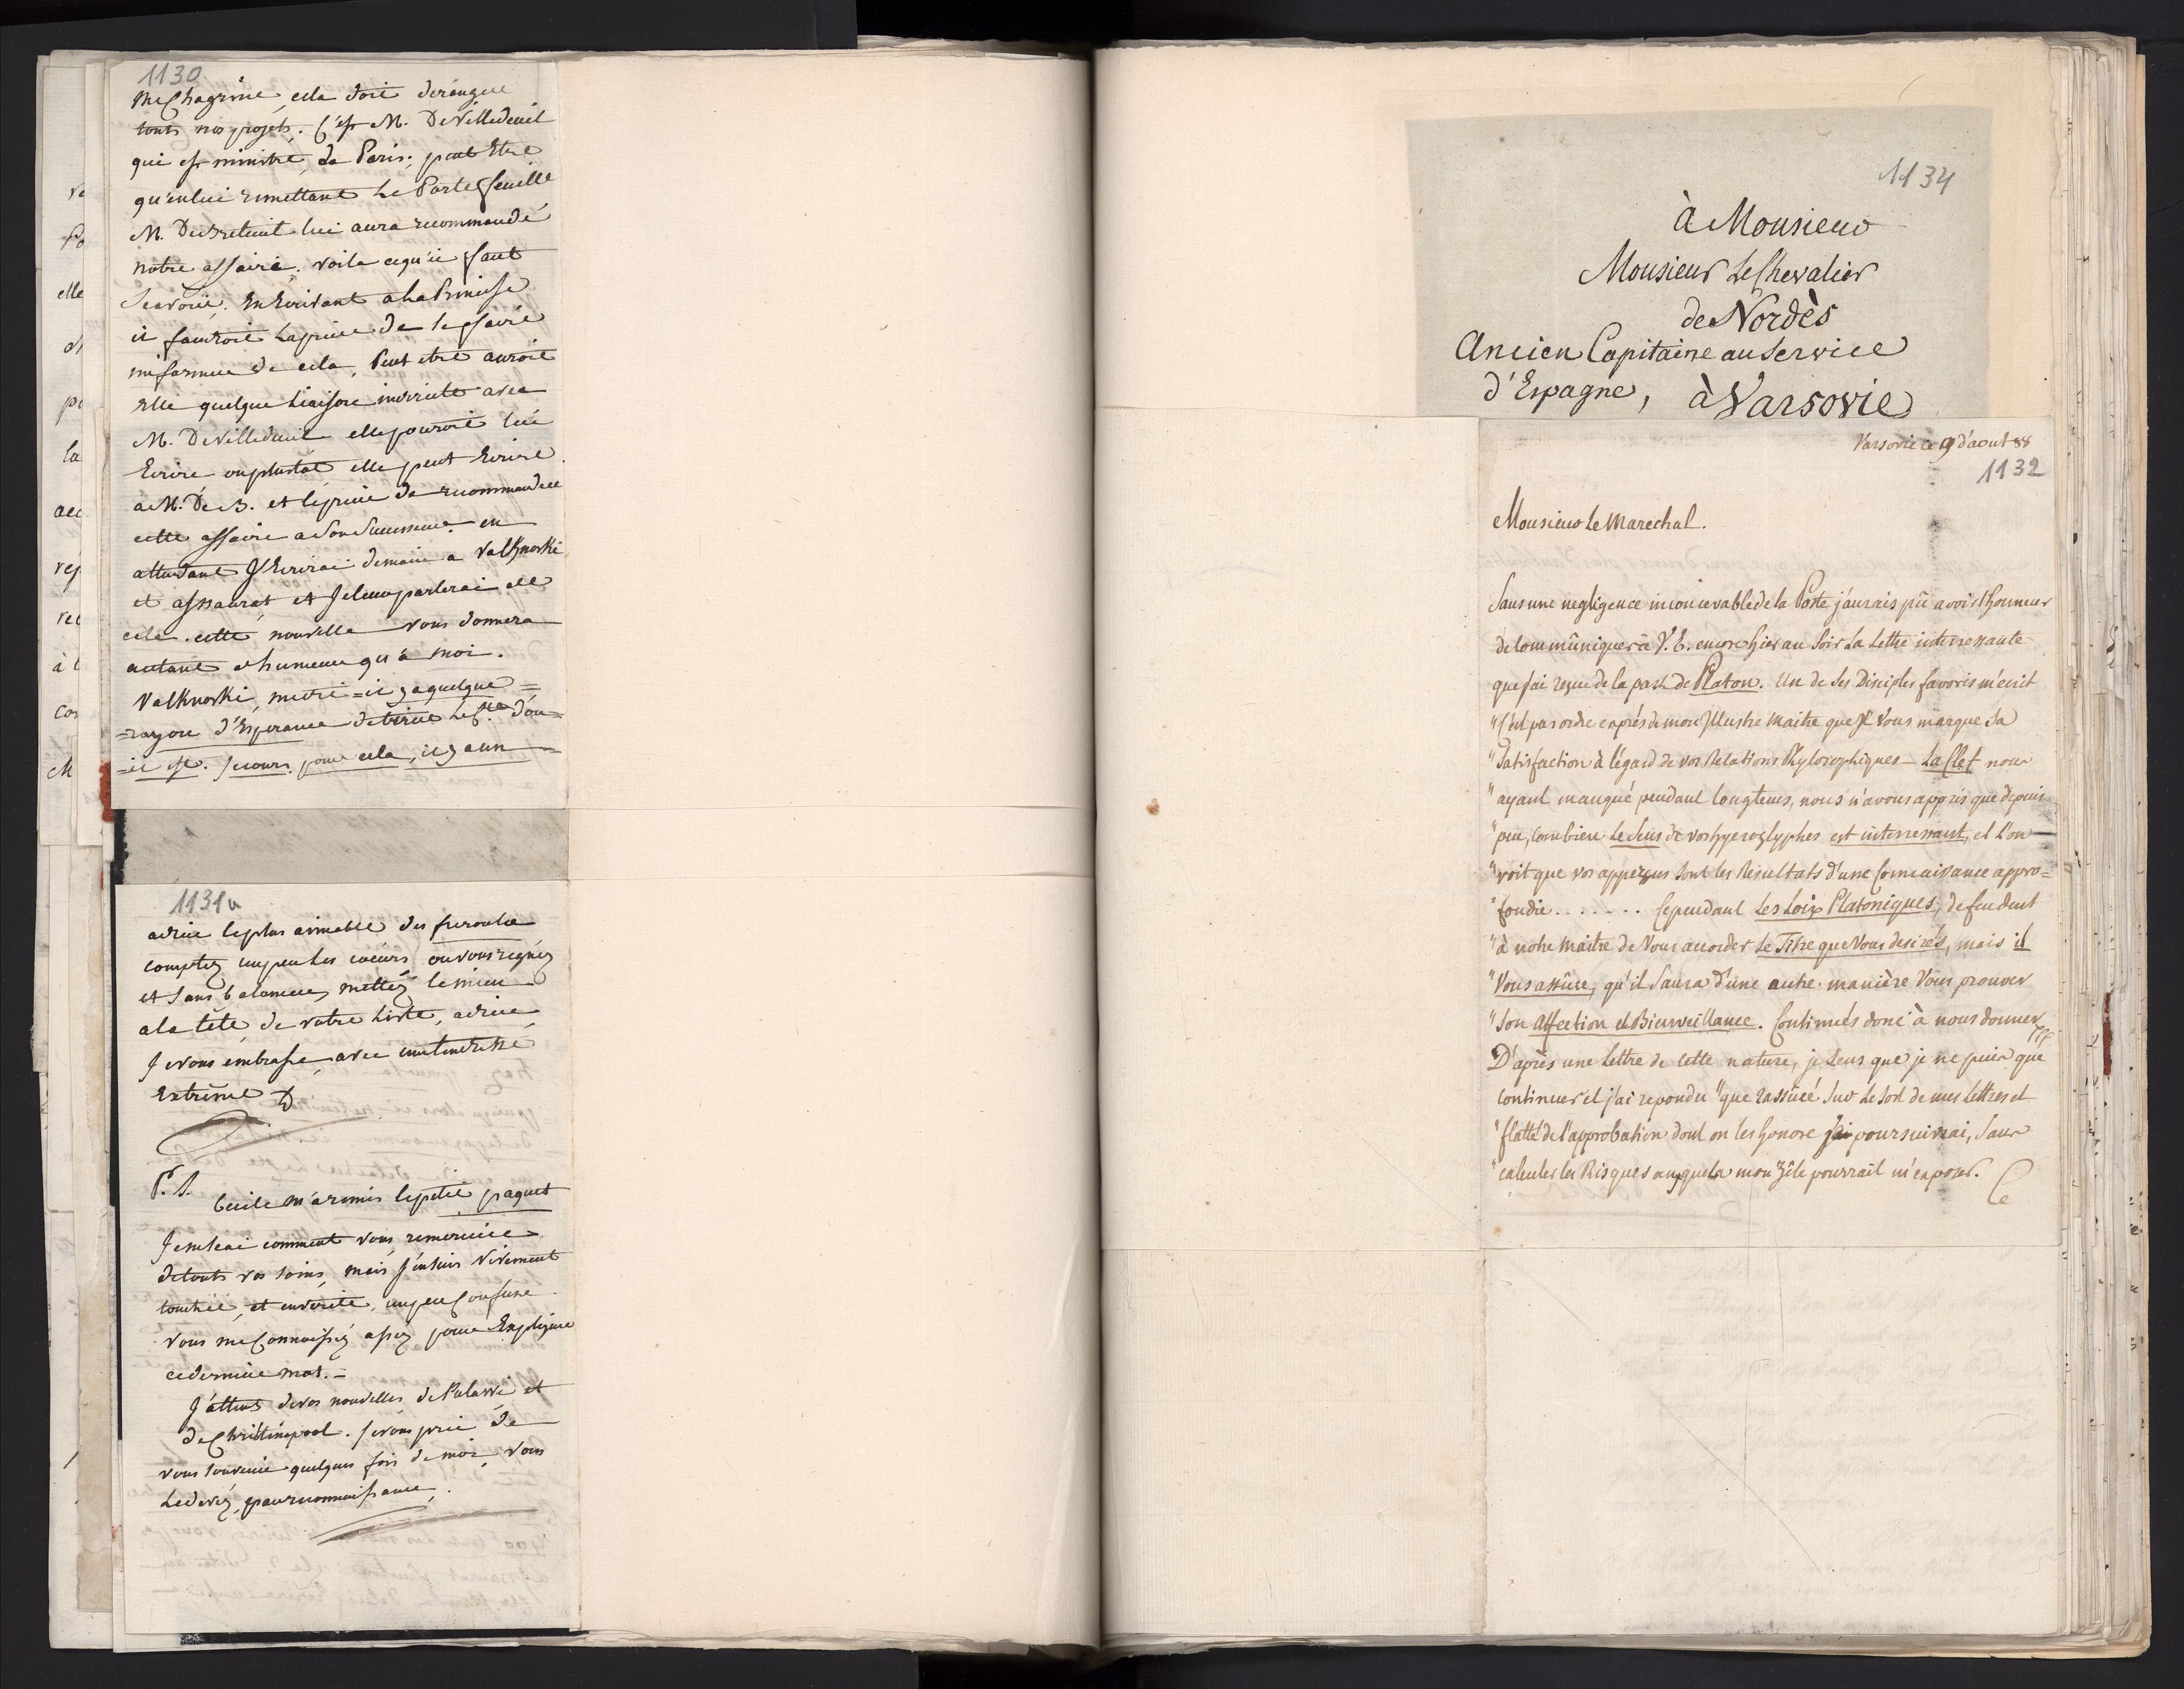 1130
me chagrine, cela doit deranger
touts nos projets. C'est M. De Villedeuil
qui est ministre de Paris; peut Etre
qu'en lui remettant Le Portefeuille
M. De Breteuil lui aura recommandé
notre affaire. voila ce qu'il faut
Scavoir. En Ecrivant a La Princesse
il faudroit La prier de
informer de cela, Peut etre auroit
Elle quelque Liaison indirecte avec
M. De Villedeuil elle pouroit lui
Ecrire ou plustôt elle peut Ecrire
a M. De B. et le prier de recommander
cette affaire a Son Successeur. en
attendant J'Ecrirai demain a Valknoski
et assaurat et Je leur parlerai de
cela. cette nouvelle vous donnera
autant d'humeur qu'a moi.
Valknoski, = il y a quelque =
=rayon d'Esperance =
=il est. Secours pour cela, il y a un =
1131a
adieu le plus aimable des
comptez un peu Les coeurs ou vous regnéz
et Sans balancer, mettéz le mien
a la tête de votre Liste, adieu
Je vous embrasse, avec une tendresse
Extrême
P. S.
Cecile m'a remis le petit paquet
Je ne scai comment vous remercier
de touts vos soins, mais J'en suis vivement
touchée, et en verité, un peu Confuse
vous me Connoissez assez pour Expliquer
ce dernier mot. =
J'attens de vos nouvelles de Pulawi et
de Christinepool. Je vous prie de
vous souvenir quelques fois de moi, vous
Le devéz, par reconnoissance.
1134
à Monsieur
Monsieur Le Chevalier
de Nordès
Ancien Capitaine au Service
d'Espagne, à Varsovie
Varsovie ce 9 d'aout 88
1132
Monsieur Le Marechal.
Sans une negligence inconcevable de la Poste j'aurais pû avoir l'honneur
de communiquer à V. E. encore hier au Soir La Lettre interressante
que j'ai reçue de la part de Platon. Un de Ses Disciples favoris m'ecrit
"C'est par ordre exprés de mon Jllustre Maitre que Je Vous marque Sa
"Satisfaction à l'égard de vos Relations Phylosophiques – La Clef nous
"ayant manqué pendant longtems, nous n'avons appris que depuis
"peu, combien Le Sens de vos hyeroglyphes est interressant, et l'on
"voit que vos apperçus Sont les Resultats d'une Connaissance appro=
"fondie. . . . . . . Cependant Les Loix Platoniques, defendent
"à notre Maitre de Vous accorder Le Titre que Vous desirés, mais il
"Vous assûre, qu'il Saura d'une autre manière Vous prouver
"Son Affection et Bienveillance. Continués donc à nous donner
D'après une Lettre de cette nature, je Sens que je ne puis que
continuer et j'ai repondu "que rassûré Sur Le Sort de mes Lettres et
"flatté de l'approbation dont on les honore poursuivrai, Sans
"calculer les Risques auxquels mon Zêle pourrait m'exposer.
Ce